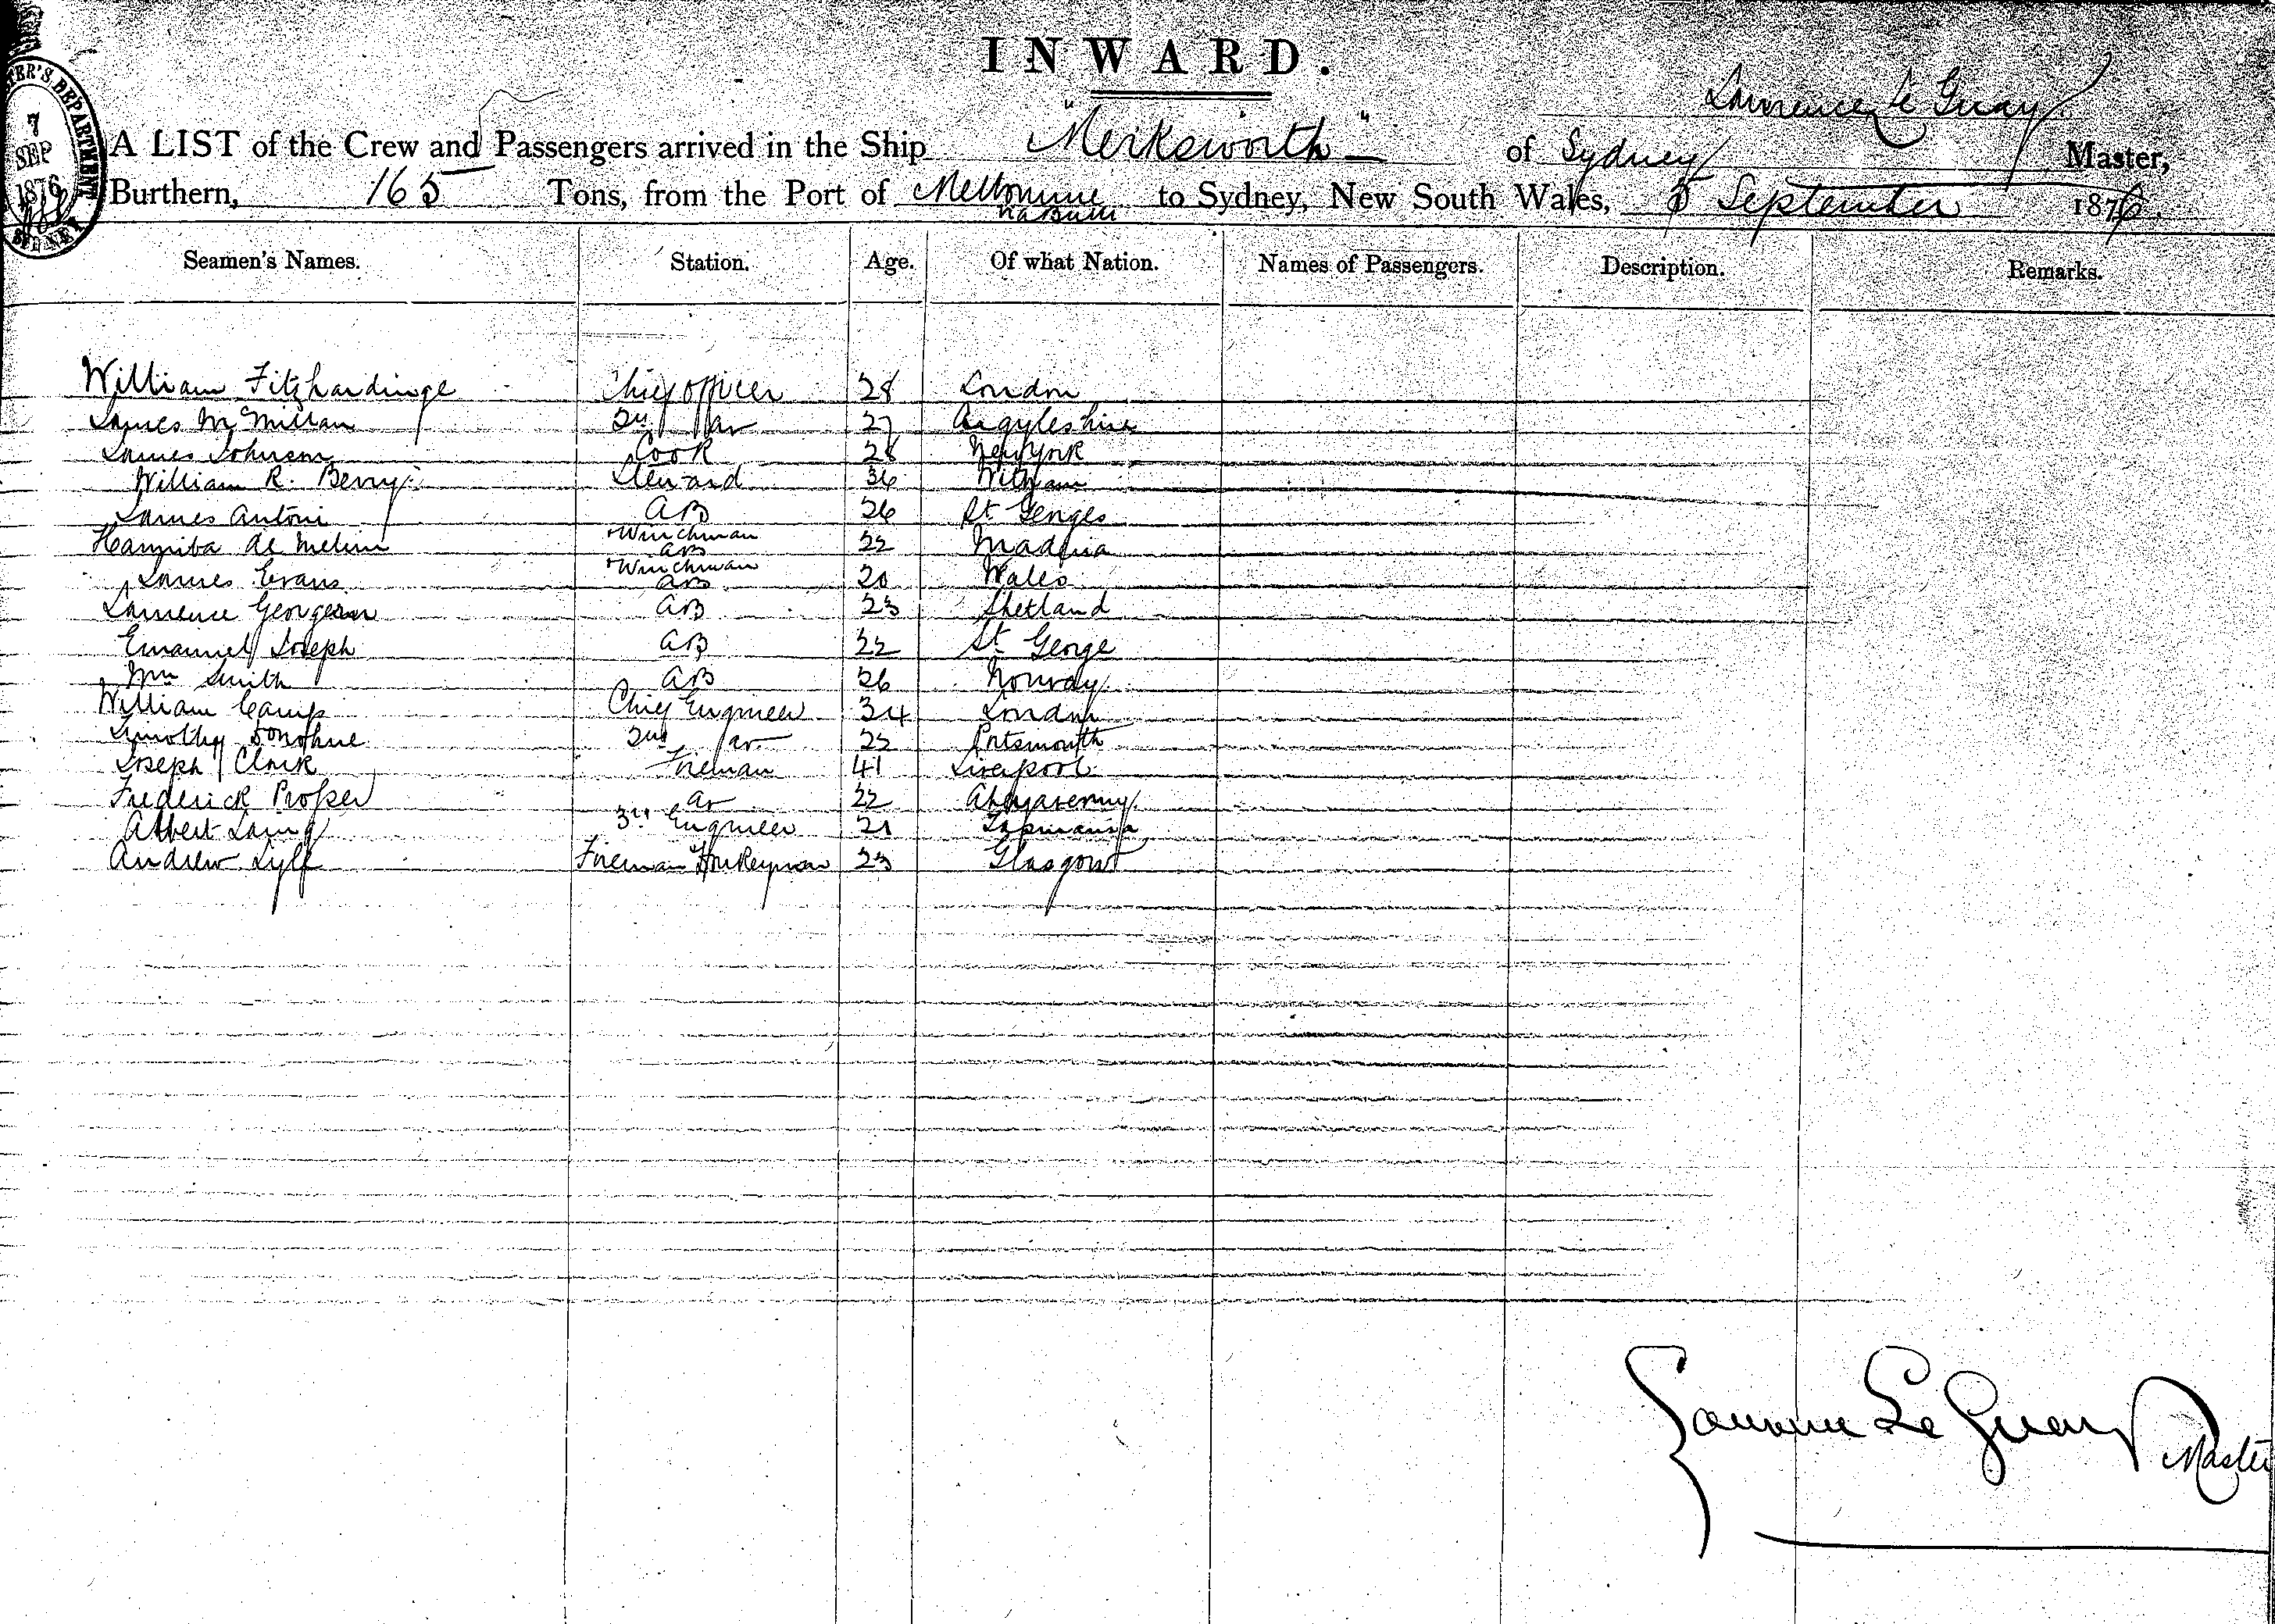 INWARD.
Lawrence Le Guay
A LIST of the Crew and Passengers arrived in the Ship "Merksworth" of Sydney Master,
Burthern, 165 Tons, from the Port of Melbourne to Sydney, New South Wales, September 1876.
7
SEP
1876
DEPARTMENT
SYDNEY
Seamen's Names. Station. Age. Of what Nation. Names of Passengers. Description. Remarks.
William Fitzhardinge Chief officer 28 London
James McMillan 2nd do 27 Argyleshire
James Johnson Cook 28 New York
William R. Berry Steward 36
James Antoni AB 26 St Georges
Winchman
AB 22
Winchman
James Evans AB 20 Wales
Lawrence Georgeson AB 23 Shetland
Emanuel Joseph AB 22 St George
Wm Smith AB 26 Norway
William Camp Chief Engineer 34 London
Timothy Donohue 2nd do 22 Portsmouth
Joseph Clark Fireman 41 Liverpool
Frederick Prosser do 22 Abergavenny
Albert Laing 3rd Engineer 21 Tasmania
Andrew Lyle Fireman Donkeyman 23 Glasgow
Lawrence Le Guay
Master